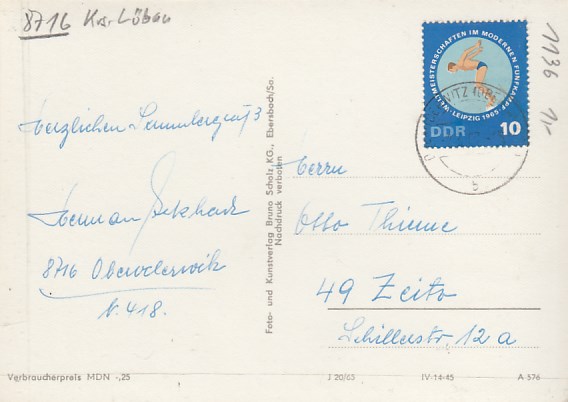 8716 Krs. Löbau
Herzlichen Sammlergruß
Herman Eckhardt
8716 Oderwitz
N. 418.
Foto- und Kunstverlag Bruno Scholz KG., Ebersbach/Sa.
Nachdruck verboten
WELTMEISTERSCHAFTEN IM MODERNEN FÜNFKAMPF · LEIPZIG 1965
DDR 10
b
1136 1,-
Herrn
Otto Thieme
49 Zeitz
Schillerstr. 12 a
Verbraucherpreis MDN -,25
J 20/65 IV-14-45 A 576